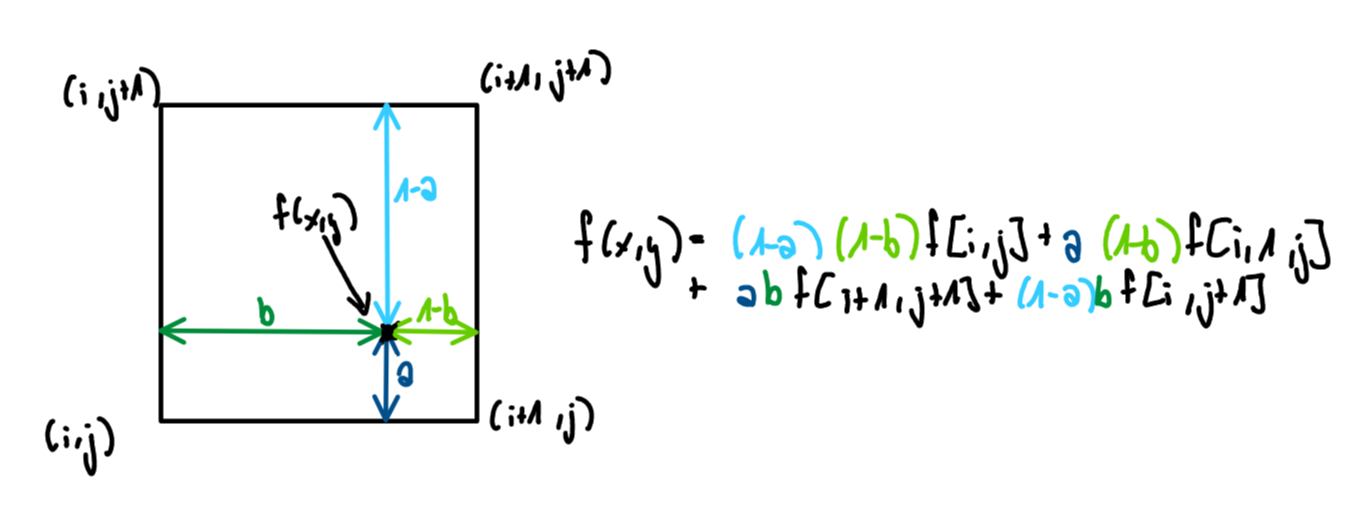 (i,j+1)
(i+1,j+1)
1-a
f(x,y)
b
1-b
a
(i,j)
(i+1,j)
f(x,y)= (1-a)(1-b)f[i,j]+a(1-b)f[i,1,j]
+ abf[i+1,j+1]+(1-a)bf[i,j+1]